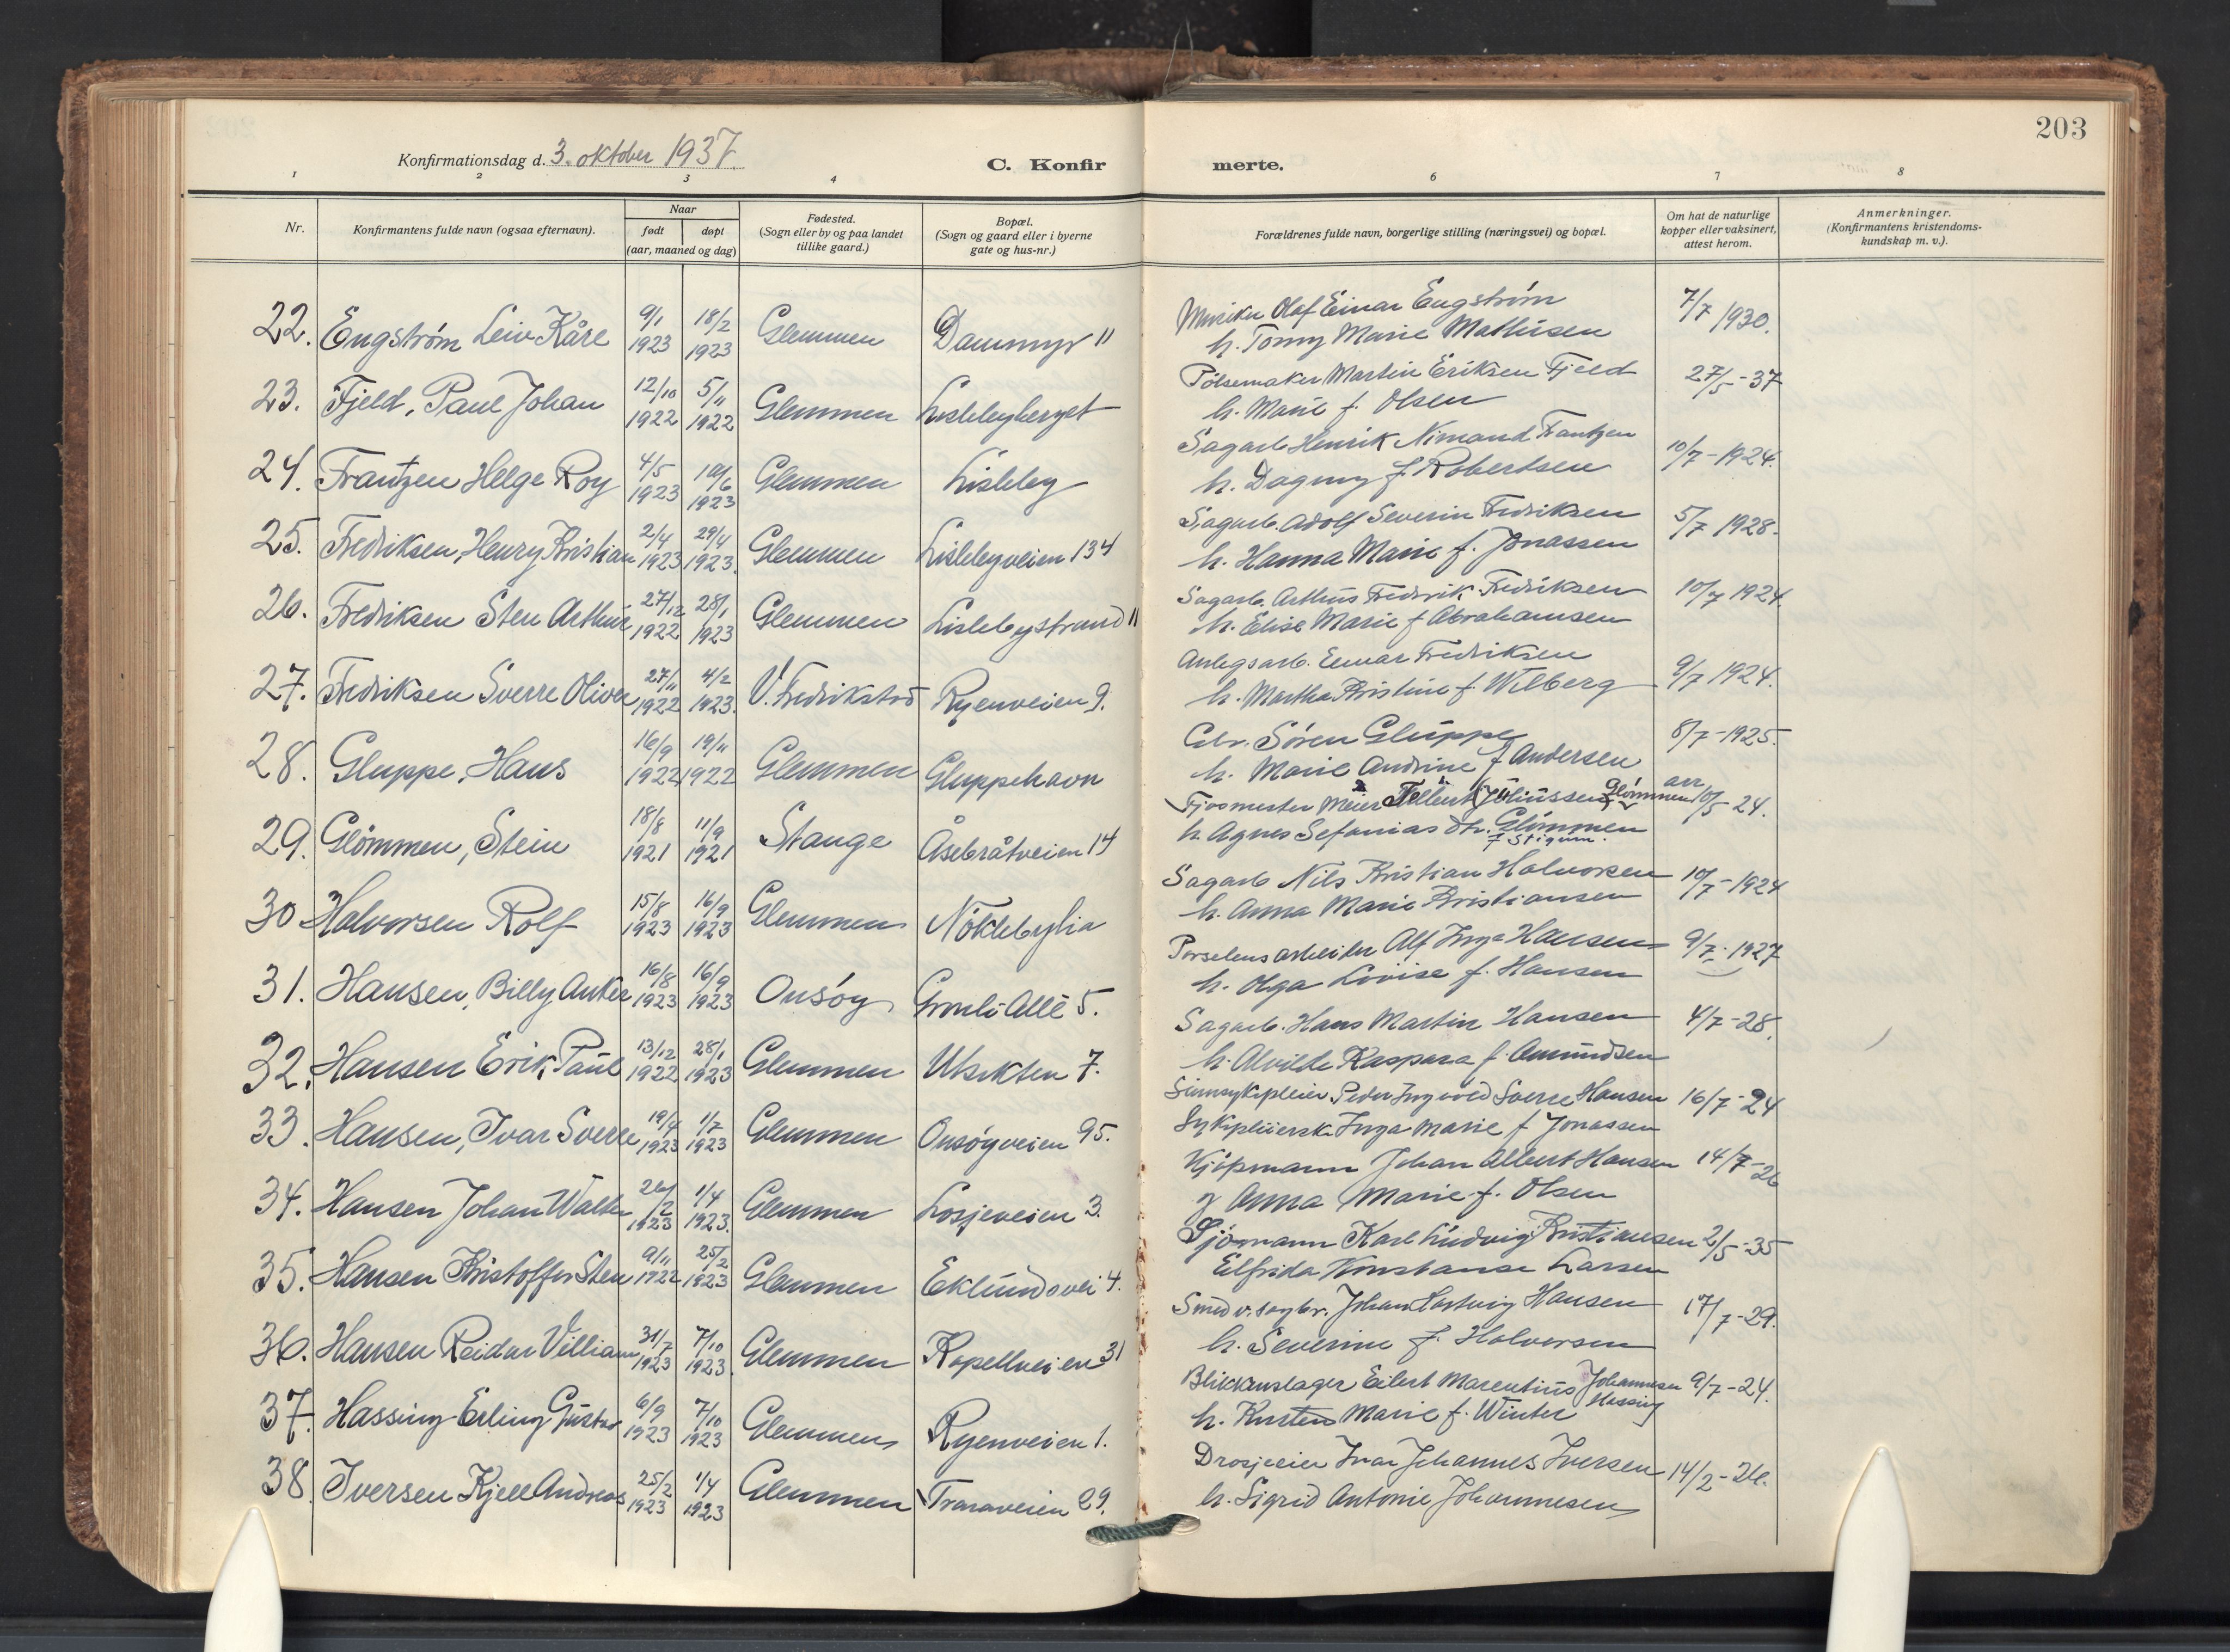 203
Konfirmationsdag d. 3. oktober 1937.
C. Konfirmerte.
1 2 3 4 6 7 8
Nr.
Konfirmantens fulde navn (ogsaa efternavn).
Naar
født døpt
(aar, maaned og dag)
Fødested.
(Sogn eller by og paa landet
tillike gaard.)
Bopæl.
(Sogn og gaard eller i byerne
gate og hus-nr.)
Forældrenes fulde navn, borgerlige stilling (næringsvei) og bopæl.
Om hat de naturlige
kopper eller vaksinert,
attest herom.
Anmerkninger.
(Konfirmantens kristendoms-
kundskap m. v.).
22. Engstrøm Leiv Kåre 9/1 1923 18/2 1923 Glemmen Dammyr 11
Olaf Einar Engstrøm 7/7 1930.
h. Tomy Marie Mathisen
23. Fjeld, Paul Johan 12/10 1922 5/11 1922 Glemmen Lislebyberget
Pølsemaker Martin Eriksen Fjeld 27/5-37
h. Marie f. Olsen
24. Frantzen Helge Roy 4/5 1923 10/6 1923 Glemmen Lisleby
Sagarb Henrik Nimand Frantzen 10/7-1924.
h. Dagny f Robertsen
25. Fredriksen, Henry Kristian 2/4 1923 29/4 1923. Glemmen Lislebyveien 134
Sagarb. Adolf Severin Fredriksen 5/7 1928.
h. Hanna Marie f. Jonassen
26. Fredriksen Sten Arthur 27/12 1922 28/1 1923 Glemmen Lislebystrand 11
Sagarb. Arthur Fredrik Fredriksen 10/7 1924.
h. Elise Marie f Abrahamsen
27. Fredriksen Sverre Oliver 27/11 1922 4/2 1923. V. Fredrikstad Ryenveien 9.
Anlegsarb. Einar Fredriksen 9/7 1924.
h. Martha Kristine f. Wilberg
28. Gluppe, Hans 16/9 1922 19/11 1922 Glemmen Gluppehavn
Gbr. Søren Gluppe 8/7-1925.
h. Marie Andrine f Andersen
29. Glømmen, Stein 18/8 1921 11/9 1921 Stange Åsebråtveien 14
Fjosmester Meier Tellert Juliussen Glømmen arr 10/5-24.
h Agnes Sefanias dtr. Glømmen
f Stigum.
30 Halvorsen Rolf 15/8 1923 16/9 1923 Glemmen Nøklebylia
Sagarb Nils Kristian Halvorsen 10/7-1924
h. Anna Marie Kristiansen
31. Hansen, Billy Anker 16/8 1923 16/9 1923 Onsøy Gronli Allé 5.
Porselensarbeider Alf Inge Hansen 9/7-1927
h. Olga Lovise f. Hansen
32. Hansen Erik Paul 13/12 1922 28/1 1923 Glemmen Utsikten 7.
Sagarb. Hans Martin Hansen 4/7-28.
h. Alvilde Kaspara f. Amundsen
33. Hansen, Ivar Sverre 19/4 1923 1/7 1923 Glemmen Onsøyveien 95.
Sinnsykepleier Peder Ingvold Sverre Hansen 16/7-24
Sykepleierske Inga Marie f Jonassen
34. Hansen Johan Walter 26/2 1923 1/4 1923. Glemmen Losjeveien 3.
Kjøpmann Johan Albert Hansen 14/7-26
g Anna Marie f. Olsen
35. Hansen Kristoffer Sten 9/11 1922 25/2 1923 Glemmen Eklundsvei 4.
Sjømann Karl Ludvig Kristiansen 2/5-35
Elfrida Konstanse Larsen
36. Hansen Reidar Villiam 31/7 1923 7/10 1923. Glemmen Kapellveien 31
Smed v. sagbr. Johan Hartvig Hansen 17/7-29.
h. Severine f. Halvorsen
37. Hassing Erling Gustav 6/9 1923 7/10 1923 Glemmen Ryenveien 1.
Blikkenslager Eilert Marentius Johannesen Hassing 9/7-24.
h. Kirsten Marie f. Winter
38. Iversen Kjell Andreas 25/2 1923 1/4 1923 Glemmen Traraveien 29.
Drosjeeier Ivar Johannes Iversen 14/2-26.
h. Sigrid Antonie Johannesen